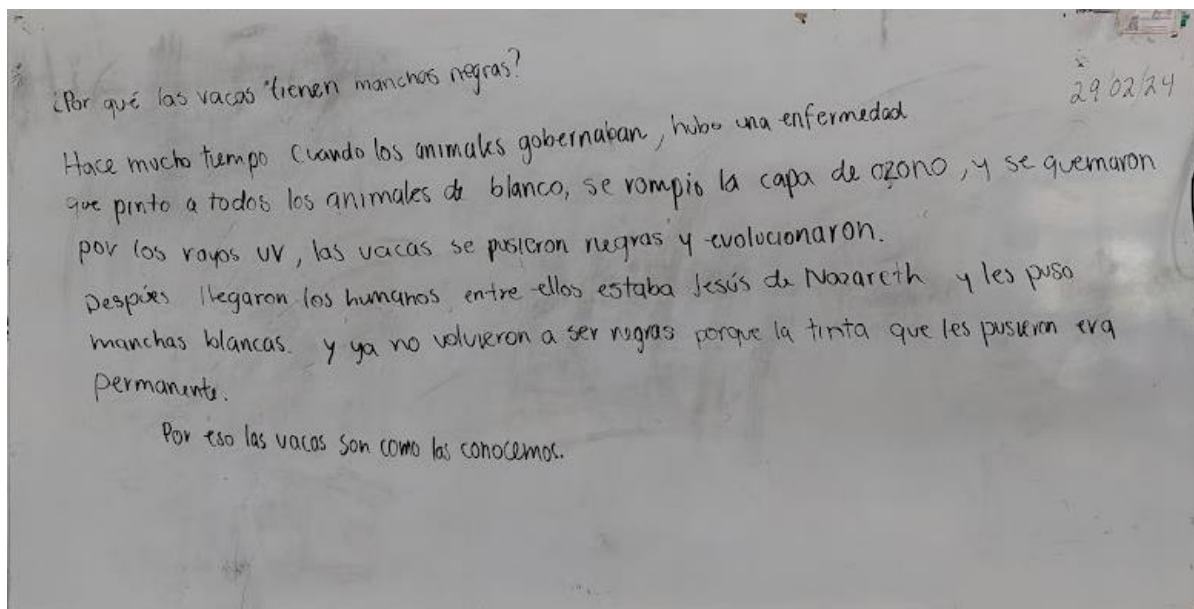 ¿Por qué las vacas tienen manchas negras?
29/02/24
Hace mucho tiempo cuando los animales gobernaban, hubo una enfermedad
que pinto a todos los animales de blanco, se rompio la capa de ozono, y se quemaron
por los rayos UV, las vacas se pusieron negras y evolucionaron.
Despúes llegaron los humanos entre ellos estaba Jesús de Nazareth y les puso
manchas blancas. y ya no volvieron a ser negras porque la tinta que les pusieron era
permanente.
Por eso las vacas son como las conocemos.